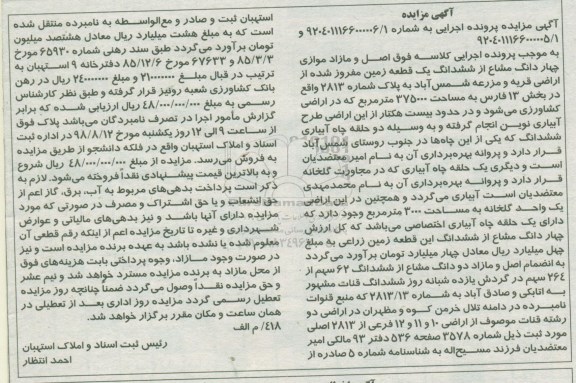 آگهی مزایده
آگهی مزایده پرونده اجرایی به شماره ۹۲۰۴۰۱۱۱۶۶۰۰۰۰۰۶/۱ و
۹۲۰۴۰۱۱۱۶۶۰۰۰۰۰۵/۱
به موجب پرونده اجرایی کلاسه فوق اصل و مازاد موازی
چهار دانگ مشاع از ششدانگ یک قطعه زمین مفروز شده از
اراضی قریه و مزرعه شمس‌آباد به پلاک شماره ۲۸۱۳ واقع
در بخش ۱۳ فارس به مساحت ۳۷۵۰۰۰ مترمربع که در اراضی
کشاورزی می‌شود و در حدود بیست هکتار از این اراضی طرح
آبیاری نوین انجام گرفته و به وسیله دو حلقه چاه آبیاری
ششدانگ که یکی از این چاه‌ها در جنوب روستای شمس آباد
قرار دارد و پروانه بهره‌برداری آن به نام امیر معتضدیان
است و دیگری یک حلقه چاه آبیاری که در مجاورت گلخانه
قرار دارد و پروانه بهره‌برداری آن به نام محمدمهدی
معتضدیان است آبیاری می‌گردد و همچنین در این اراضی
یک واحد گلخانه به مساحت ۳۰۰۰ مترمربع وجود دارد که
دارای یک حلقه چاه آبیاری اختصاصی می‌باشد که کل ارزش
چهار دانگ مشاع از ششدانگ این قطعه زمین زراعی به مبلغ
چهل میلیارد ریال معادل چهار میلیارد تومان برآورد می‌گردد
به انضمام اصل و مازاد دو دانگ مشاع از ششدانگ ۶۲ سهم از
۲۶۴ سهم در گردش یازده شبانه روز ششدانگ قنات مشهور
به اتابکی و صادق آباد به شماره ۲۸۱۳/۱۳ که منبع قنوات
نامبرده در دامنه تلال خرمن کوه و مظهران در اراضی دو
رشته قنات موصوف از اراضی ۱۰ و ۱۱ و ۱۲ فرعی از ۲۸۱۳ اصلی
مورد ثبت ذیل شماره ۳۵۷۸ صفحه ۵۳۶ دفتر ۹۳ مالکی امیر
معتضدیان فرزند مسیح‌اله به شناسنامه شماره ۵ صادره از
استهبان ثبت و صادر و مع‌الواسطه به نامبرده منتقل شده
است که به مبلغ هشت میلیارد ریال معادل هشتصد میلیون
تومان برآورد می‌گردد طبق سند رهنی شماره ۶۵۹۳۰ مورخ
۸۵/۳/۳ و ۶۷۶۳۳ مورخ ۸۵/۱۲/۶ دفترخانه ۹ استهبان به
ترتیب در قبال مبلغ ۲۱۰۰۰۰۰۰۰۰ و مبلغ ۲۴۰۰۰۰۰۰۰ ریال در رهن
بانک کشاورزی شعبه رونیز قرار گرفته و طبق نظر کارشناس
رسمی به مبلغ ۴۸/۰۰۰/۰۰۰/۰۰۰ ریال ارزیابی شده که برابر
گزارش مأمور اجرا در تصرف نامبردگان می‌باشد پلاک فوق
از ساعت ۹ الی ۱۲ روز یکشنبه مورخ ۹۸/۸/۱۲ در اداره ثبت
اسناد و املاک استهبان واقع در فلکه دانشجو از طریق مزایده
به فروش می‌رسد. مزایده از مبلغ ۴۸/۰۰۰/۰۰۰/۰۰۰ ریال شروع
و به بالاترین قیمت پیشنهادی نقداً فروخته می‌شود. لازم به
ذکر است پرداخت بدهی‌های مربوط به آب، برق، گاز اعم از
حق انشعاب و یا حق اشتراک و مصرف در صورتی که مورد
مزایده دارای آنها باشد و نیز بدهی‌های مالیاتی و عوارض
شهرداری و غیره تا تاریخ مزایده اعم از اینکه رقم قطعی آن
معلوم شده یا نشده باشد به عهده برنده مزایده است و نیز
در صورت وجود مازاد، وجوه پرداختی بابت هزینه‌های فوق
از محل مازاد به برنده مزایده مسترد خواهد شد و نیم عشر
و حق مزایده نقداً وصول می‌گردد ضمناً چنانچه روز مزایده
تعطیل رسمی گردد مزایده روز اداری بعد از تعطیلی در
همان ساعت و مکان مقرر برگزار خواهد شد.
۴۱۸/ م الف
رئیس ثبت اسناد و املاک استهبان
احمد انتظار